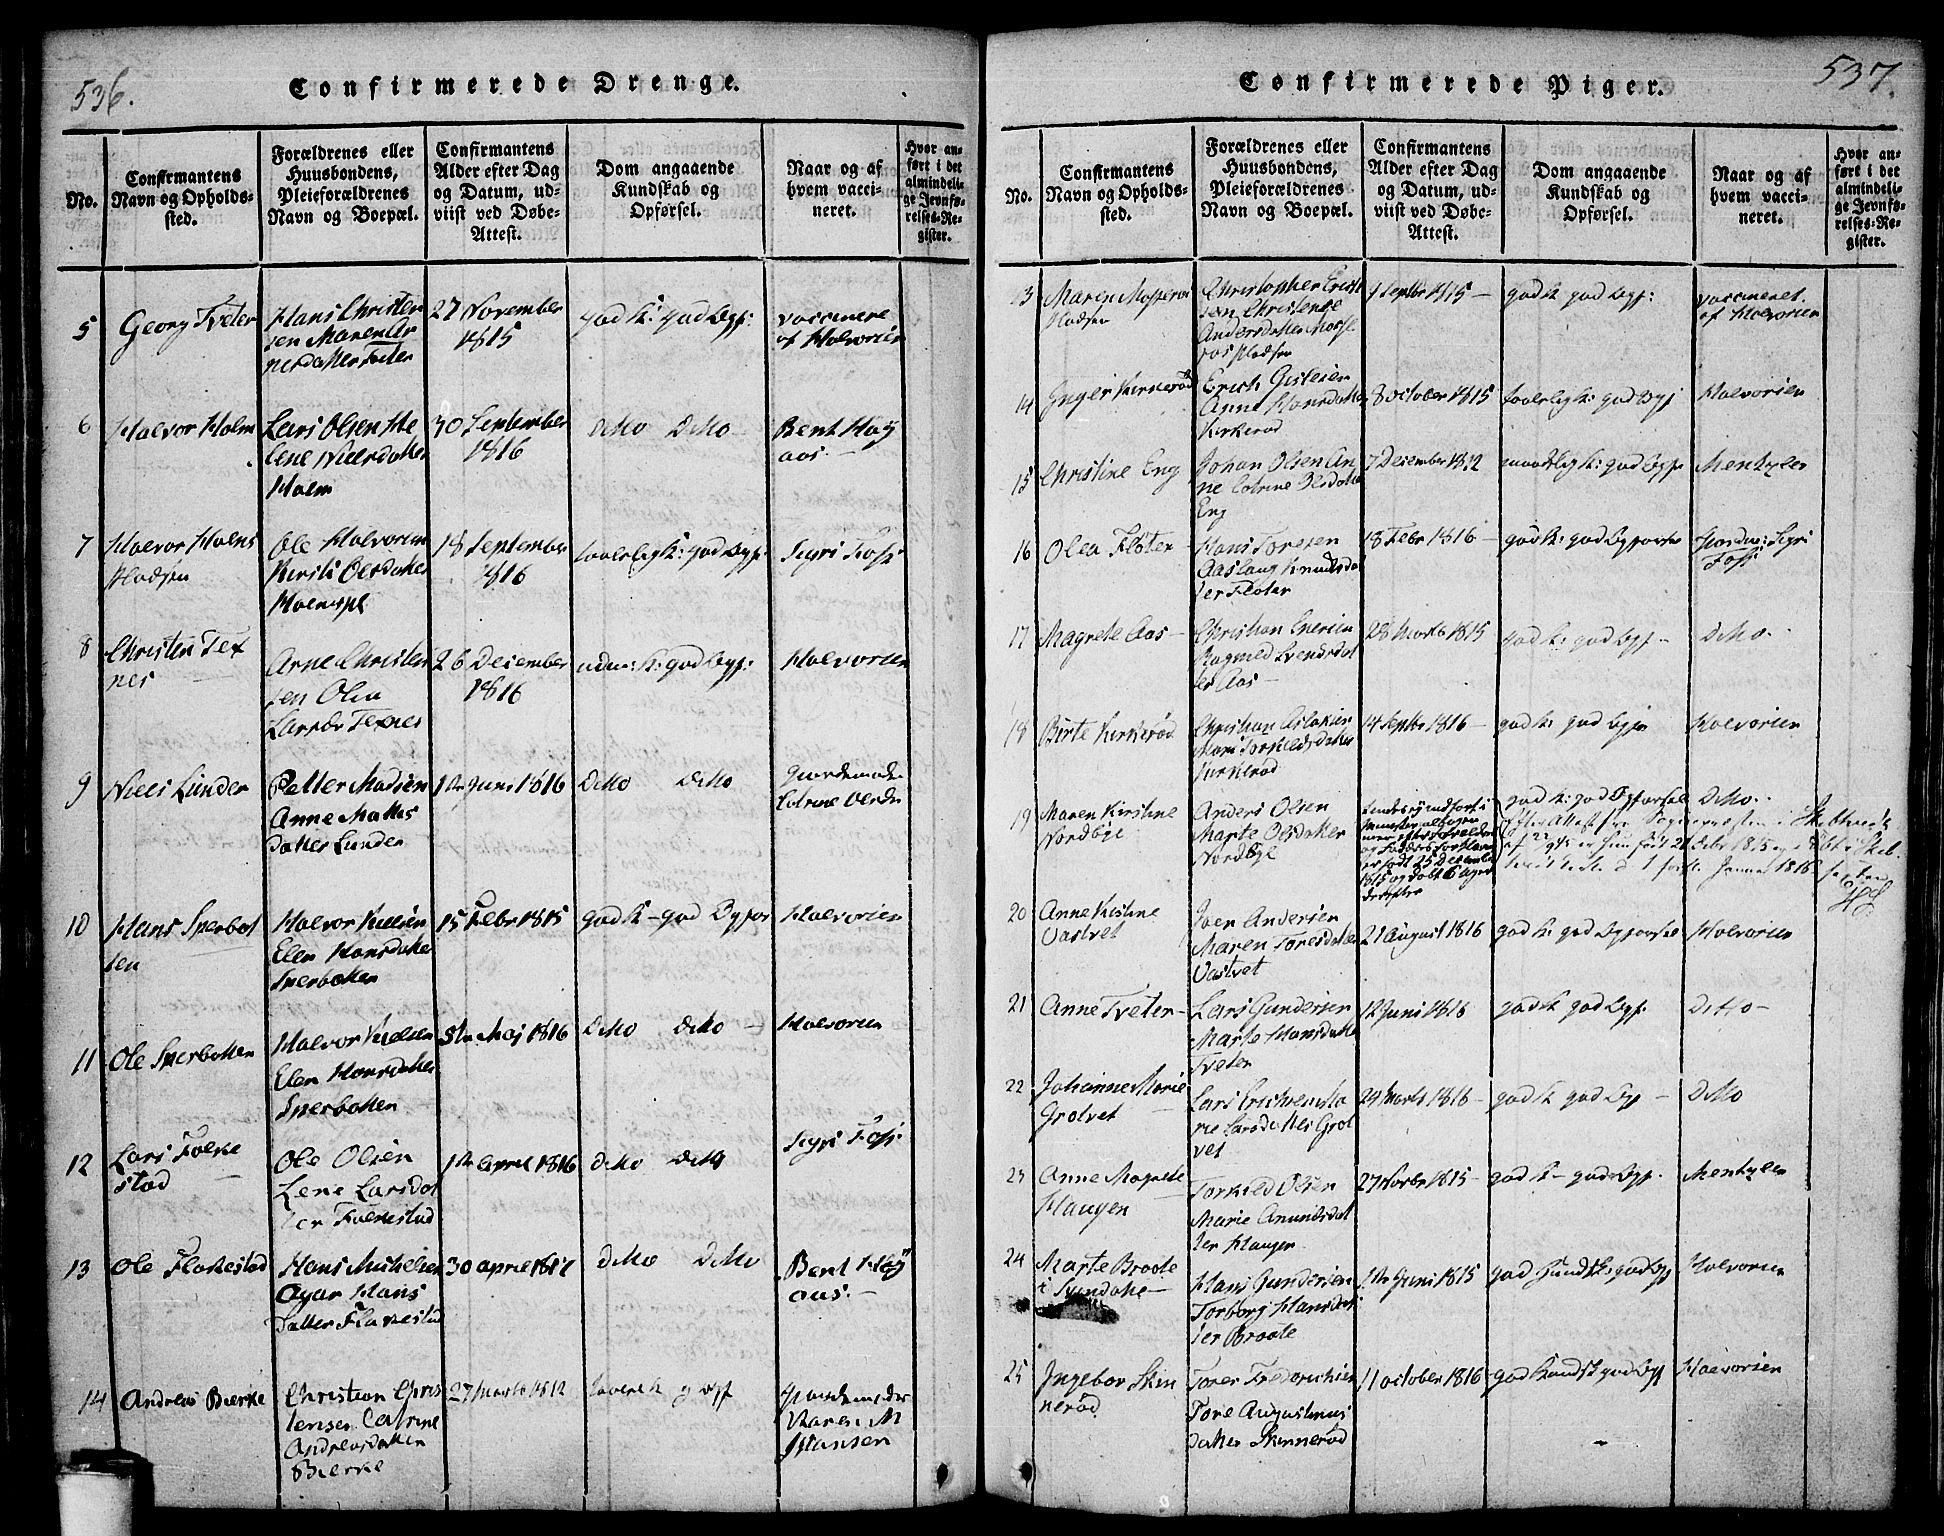 536.
Confirmerede Drenge.
No.
Confirmantens
Navn og Opholds-
sted.
Forældrenes eller
Huusbondens,
Pleieforældrenes
Navn og Boepæl.
Confirmantens
Alder efter Dag
og Datum, ud-
viist ved Døbe-
Attest.
Dom angaaende
Kundskab og
Opførsel.
Naar og af
hvem vacci-
neret.
Hvor an-
ført i det
almindeli-
ge Jevnfø-
relses-Re-
gister.
5
Georg Tveter
Hans Christen
sen Maren
Tveter
27 November
1815
god K: god Opf:
vaccinere
af Halvorsen
6
Halvor Holm
Lars Olsen He
lene Nielsdatter
Holm
30 September
1816
ditto ditto
Bent Høy
aas.
7
Halvor Holms
Pladsen
Ole Halvorsen
Kirsti Olsdatter
Holmspl
18 September
1816
taaerlig K: god Opf:
Sigri Foss
8
Christen Tex
nes
Arne Christen
sen Olea
Larsdr Texnes
26 December
1816
god Opf:
Halvorsen
9
Niels Lunder
Petter Madsen
Anne Mattis
datter Lunder
1te Juni 1816
ditto ditto
Giordemoder
Cotrine Olsdr
10
Hans Sperbot
ten
Halvor Nielsen
Elen Hansdatter
Sperbotten
15 Febr 1815
god K - god Opfør
Halvorsen
11
Ole Sperbotten
Halvor Nielsen
Elen Hansdatter
Sperbotten
31te Maj 1816
ditto ditto
Halvorsen
12
Lars Folke
stad
Ole Olsen
Lene Larsdat
ter Folkestad
1te April 1816
ditto ditto
Sigri Foss
13
Ole Flakestad
Hans Mikelsen
Hans
datter Flakestad
30 April 1817
ditto ditto
Bent Høy
aas.
14
Andreas Bierke
Christian Chris
tensen Catrine
Andreasdatter
Bierke
27 Marts 1812
g Opf
Giordemoder
Karen M
Hansen
537.
Confirmerede Piger.
No.
Confirmantens
Navn og Opholds-
sted.
Forældrenes eller
Huusbondens,
Pleieforældrenes
Navn og Boepæl.
Confirmantens
Alder efter Dag
og Datum, ud-
viist ved Døbe-
Attest.
Dom angaaende
Kundskab og
Opførsel.
Naar og af
hvem vacci-
neret.
Hvor an-
ført i det
almindeli-
ge Jevnfø-
relses-Re-
gister.
13
Maren
Pladsen
Christopher Erick
sen Christense
Andersdatter
Pladsen
Septbr 1815
god K god Opf:
vaccineret
af Halvorsen
14
Inger Kirkerød
Erich Gislesen
Anne Hansdatter
Kirkerød
8 October 1815
god Opf
Halvorsen
15
Christine Eng
Johan Olsen An
ne Cotrine Olsdatter
Eng
7 December 1812
maadelig K: god Opf
Mentzler
16
Olea Fløter
Hans Toresen
Aaslaug Knudsda
ter Fløter
18 Febr 1816
god K: god Opførsel
Giordm: Sigri
Foss
17
Magrete Aas
Christian Iversen
Svendsdat
ter Aas
28 Marts 1815
god K: god Opf
ditto
18
Birte Kirkerød
Christian Aslaksen
Mari Torkeldsdatter
Kirkerød
14 Septbr 1816
god K: god Opf
Halvorsen
19
Maren Kirstine
Nordbye
Anders Olsen
Marte Olsdatter
Nordbye
er født 25 December
1815 og døbt 6 Dage
derefter
god K: god Opførsel
ditto
20
Anne Kistine
Vastvet
Joen Andersen
Maren Toresdatter
Vastvet
21 August 1816
god K: god Opførsel
Halvorsen
21
Anne Tveter
Lars Gundersen
Marte Hansdatter
Tveter
12 Juni 1816
god K god Opf:
ditto
22
Johanne Marie
Grotvet
Lars Erichsen Ma
rie Larsdatter Grot
vet
29 Marts 1816
god K god Opf
ditto
23
Anne Magrete
Haugen
Torkild Olsen
Marie Amundsdat
ter Haugen
27 Novbr 1815
god K - god Opf.
Mentzler
24
Marte Braate
i
Hans Gundersen
Torborg Hansdat
ter Braate
1te Juni 1815
god Kundsk: god Opf
Halvorsen
25
Ingebor Skin
nerød
Torer Fredrichsen
Tore Augustinus
datter Skinnerød
11 October 1816
god Kundsk god Opf
Halvorsen